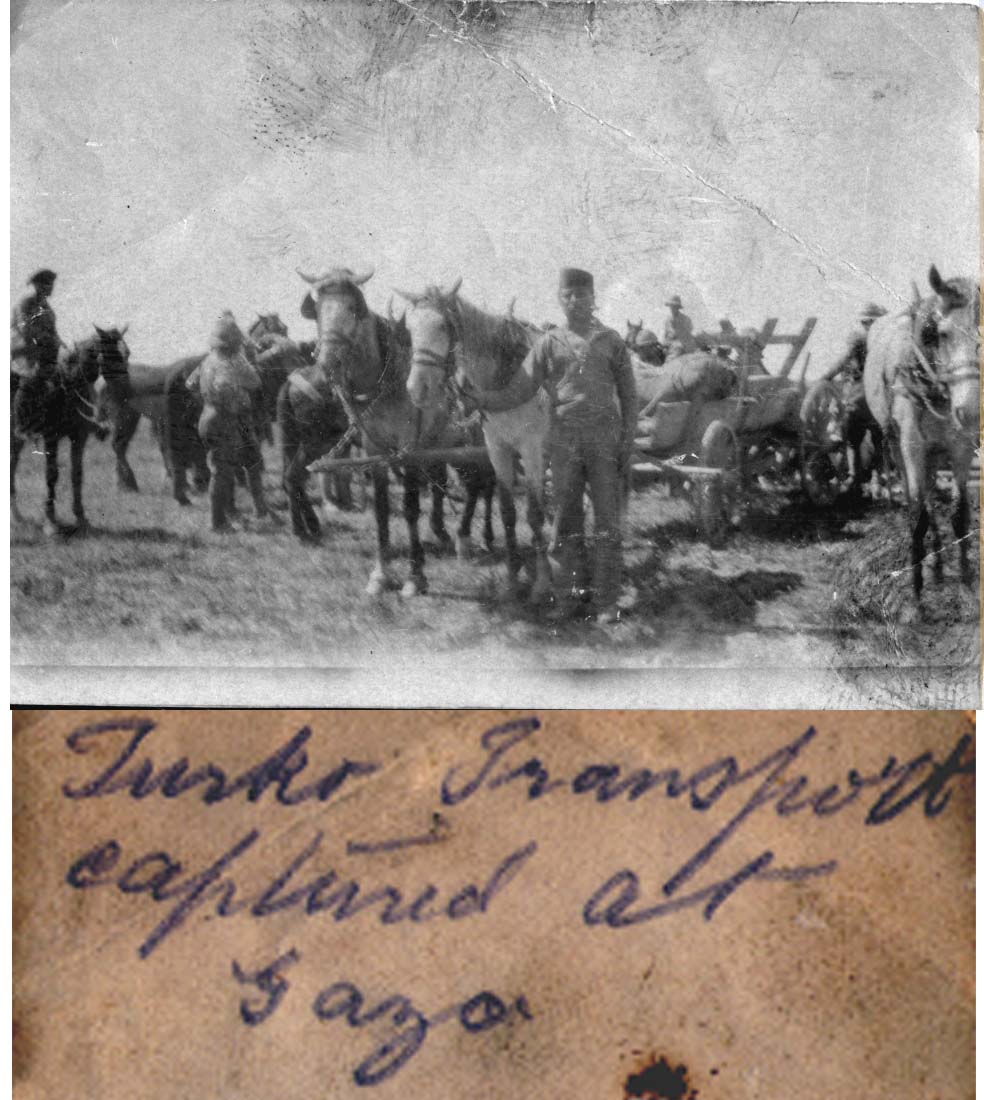 Turko Transport
captured at
Gaza